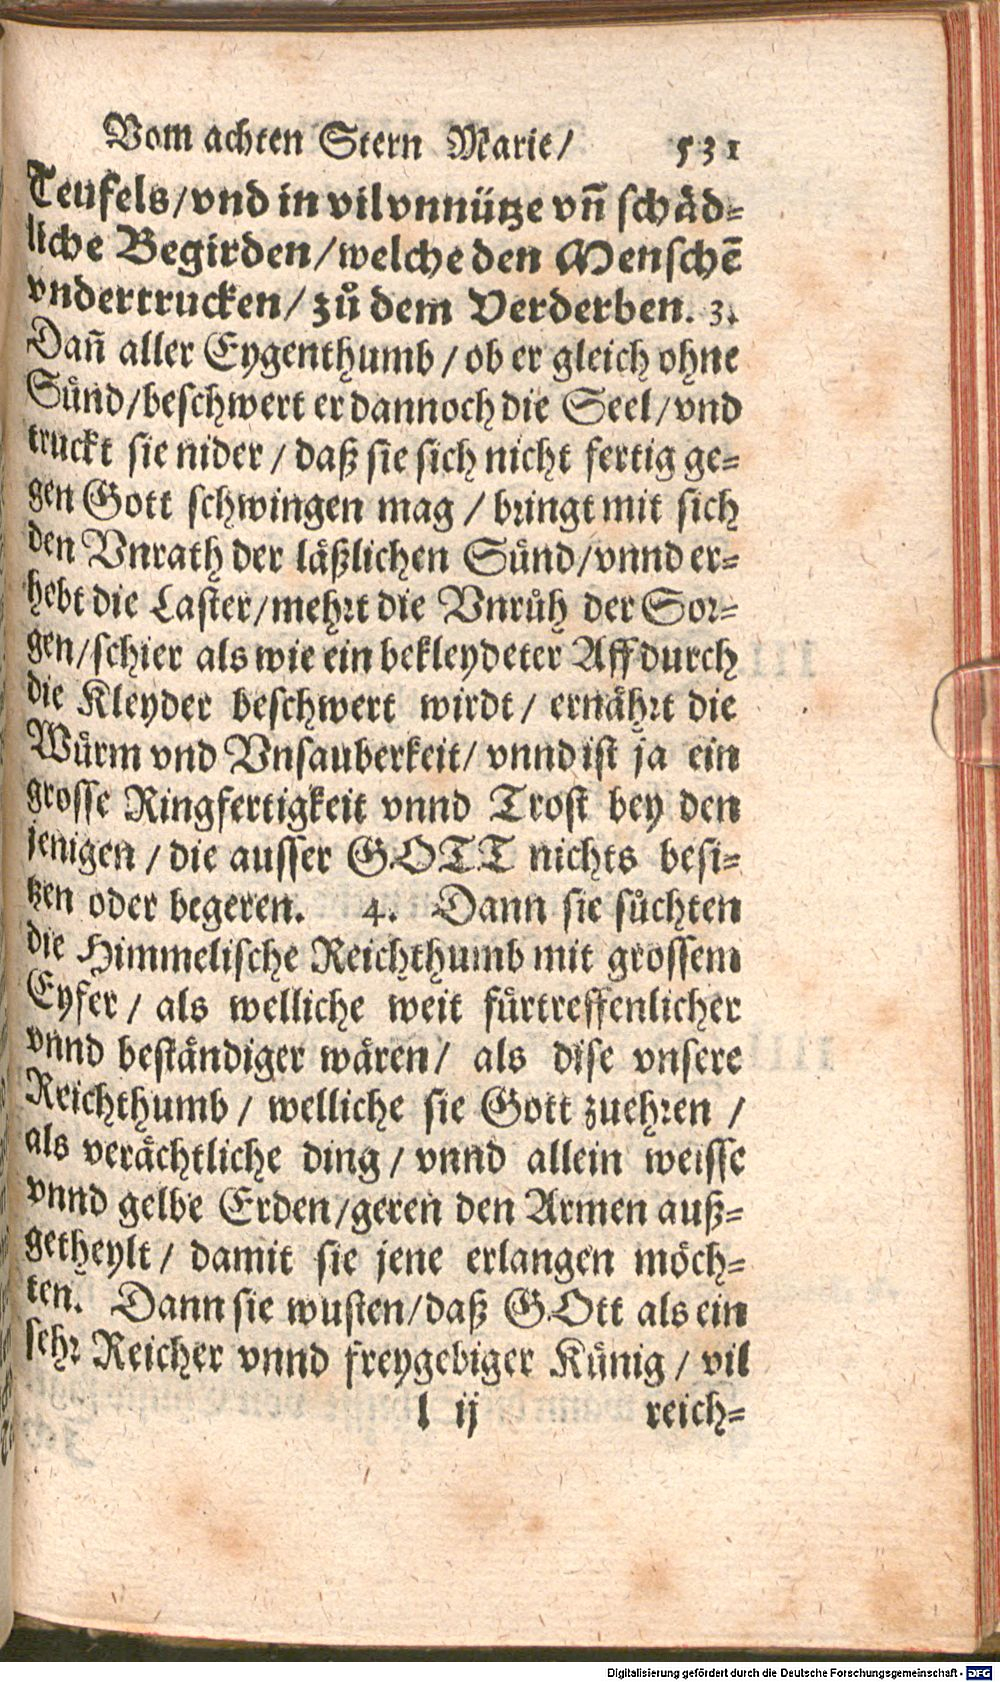 Vom achten Stern Marie/ 531
Teufels/vnd in vil vnnütze vn̄ schäd=
liche Begirden/welche den Menschē
vndertrucken/ zů dem Verderben. 3.
Dan̄ aller Eygenthumb / ob er gleich ohne
Sünd/beschwert er dannoch die Seel/vnd
truckt sie nider / daß sie sich nicht fertig ge=
gen Gott schwingen mag / bringt mit sich
den Vnrath der läßlichen Sünd/vnnd er=
hebt die Laster/mehrt die Vnrůh der Sor=
gen/schier als wie ein bekleydeter Aff durch
die Kleyder beschwert wirdt / ernährt die
Würm vnd Vnsauberkeit/ vnnd ist ja ein
grosse Ringfertigkeit vnnd Trost bey den
jenigen / die ausser GOTT nichts besi=
tzen oder begeren. 4. Dann sie sůchten
die Himmelische Reichthumb mit grossem
Eyfer / als welliche weit fürtreffenlicher
vnnd beständiger wären/ als dise vnsere
Reichthumb / welliche sie Gott zuehren /
als verächtliche ding / vnnd allein weisse
vnnd gelbe Erden/geren den Armen auß=
getheylt / damit sie jene erlangen möch=
ten. Dann sie wusten/daß GOtt als ein
sehr Reicher vnnd freygebiger Künig / vil
l ij reich=
Digitalisierung gefördert durch die Deutsche Forschungsgemeinschaft - DFG